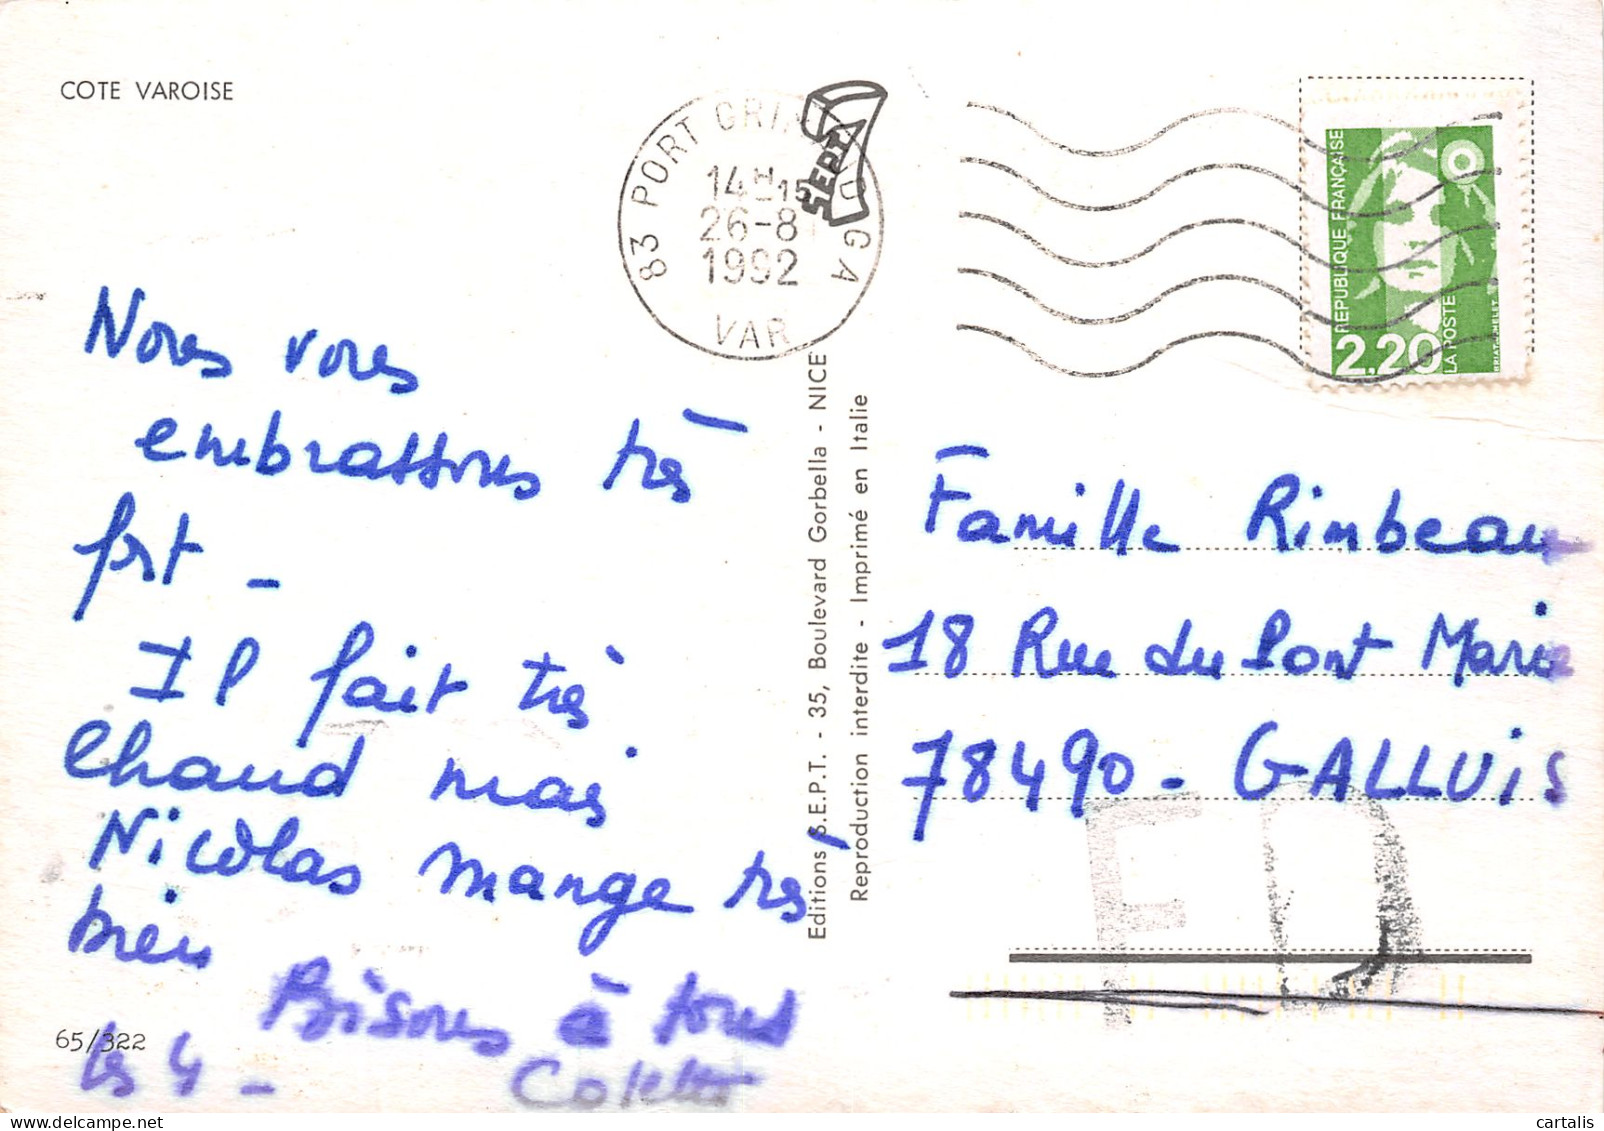 COTE VAROISE
83 PORT GRIMAUD GA
14H15
26-8
1992
VAR
SEPT
REPUBLIQUE FRANÇAISE
LA POSTE
2.20
Nous vous
embrassons très
fort -
Il fait très
Chaud mais
Nicolas mange très
bien
Bisous à tous
les 4 -
Colette
65/322
Editions S.E.P.T. - 35, Boulevard Gorbella - NICE
Reproduction interdite - Imprimé en Italie
Famille Rimbeau
18 Rue du Pont Marie
78490 - GALLUIS